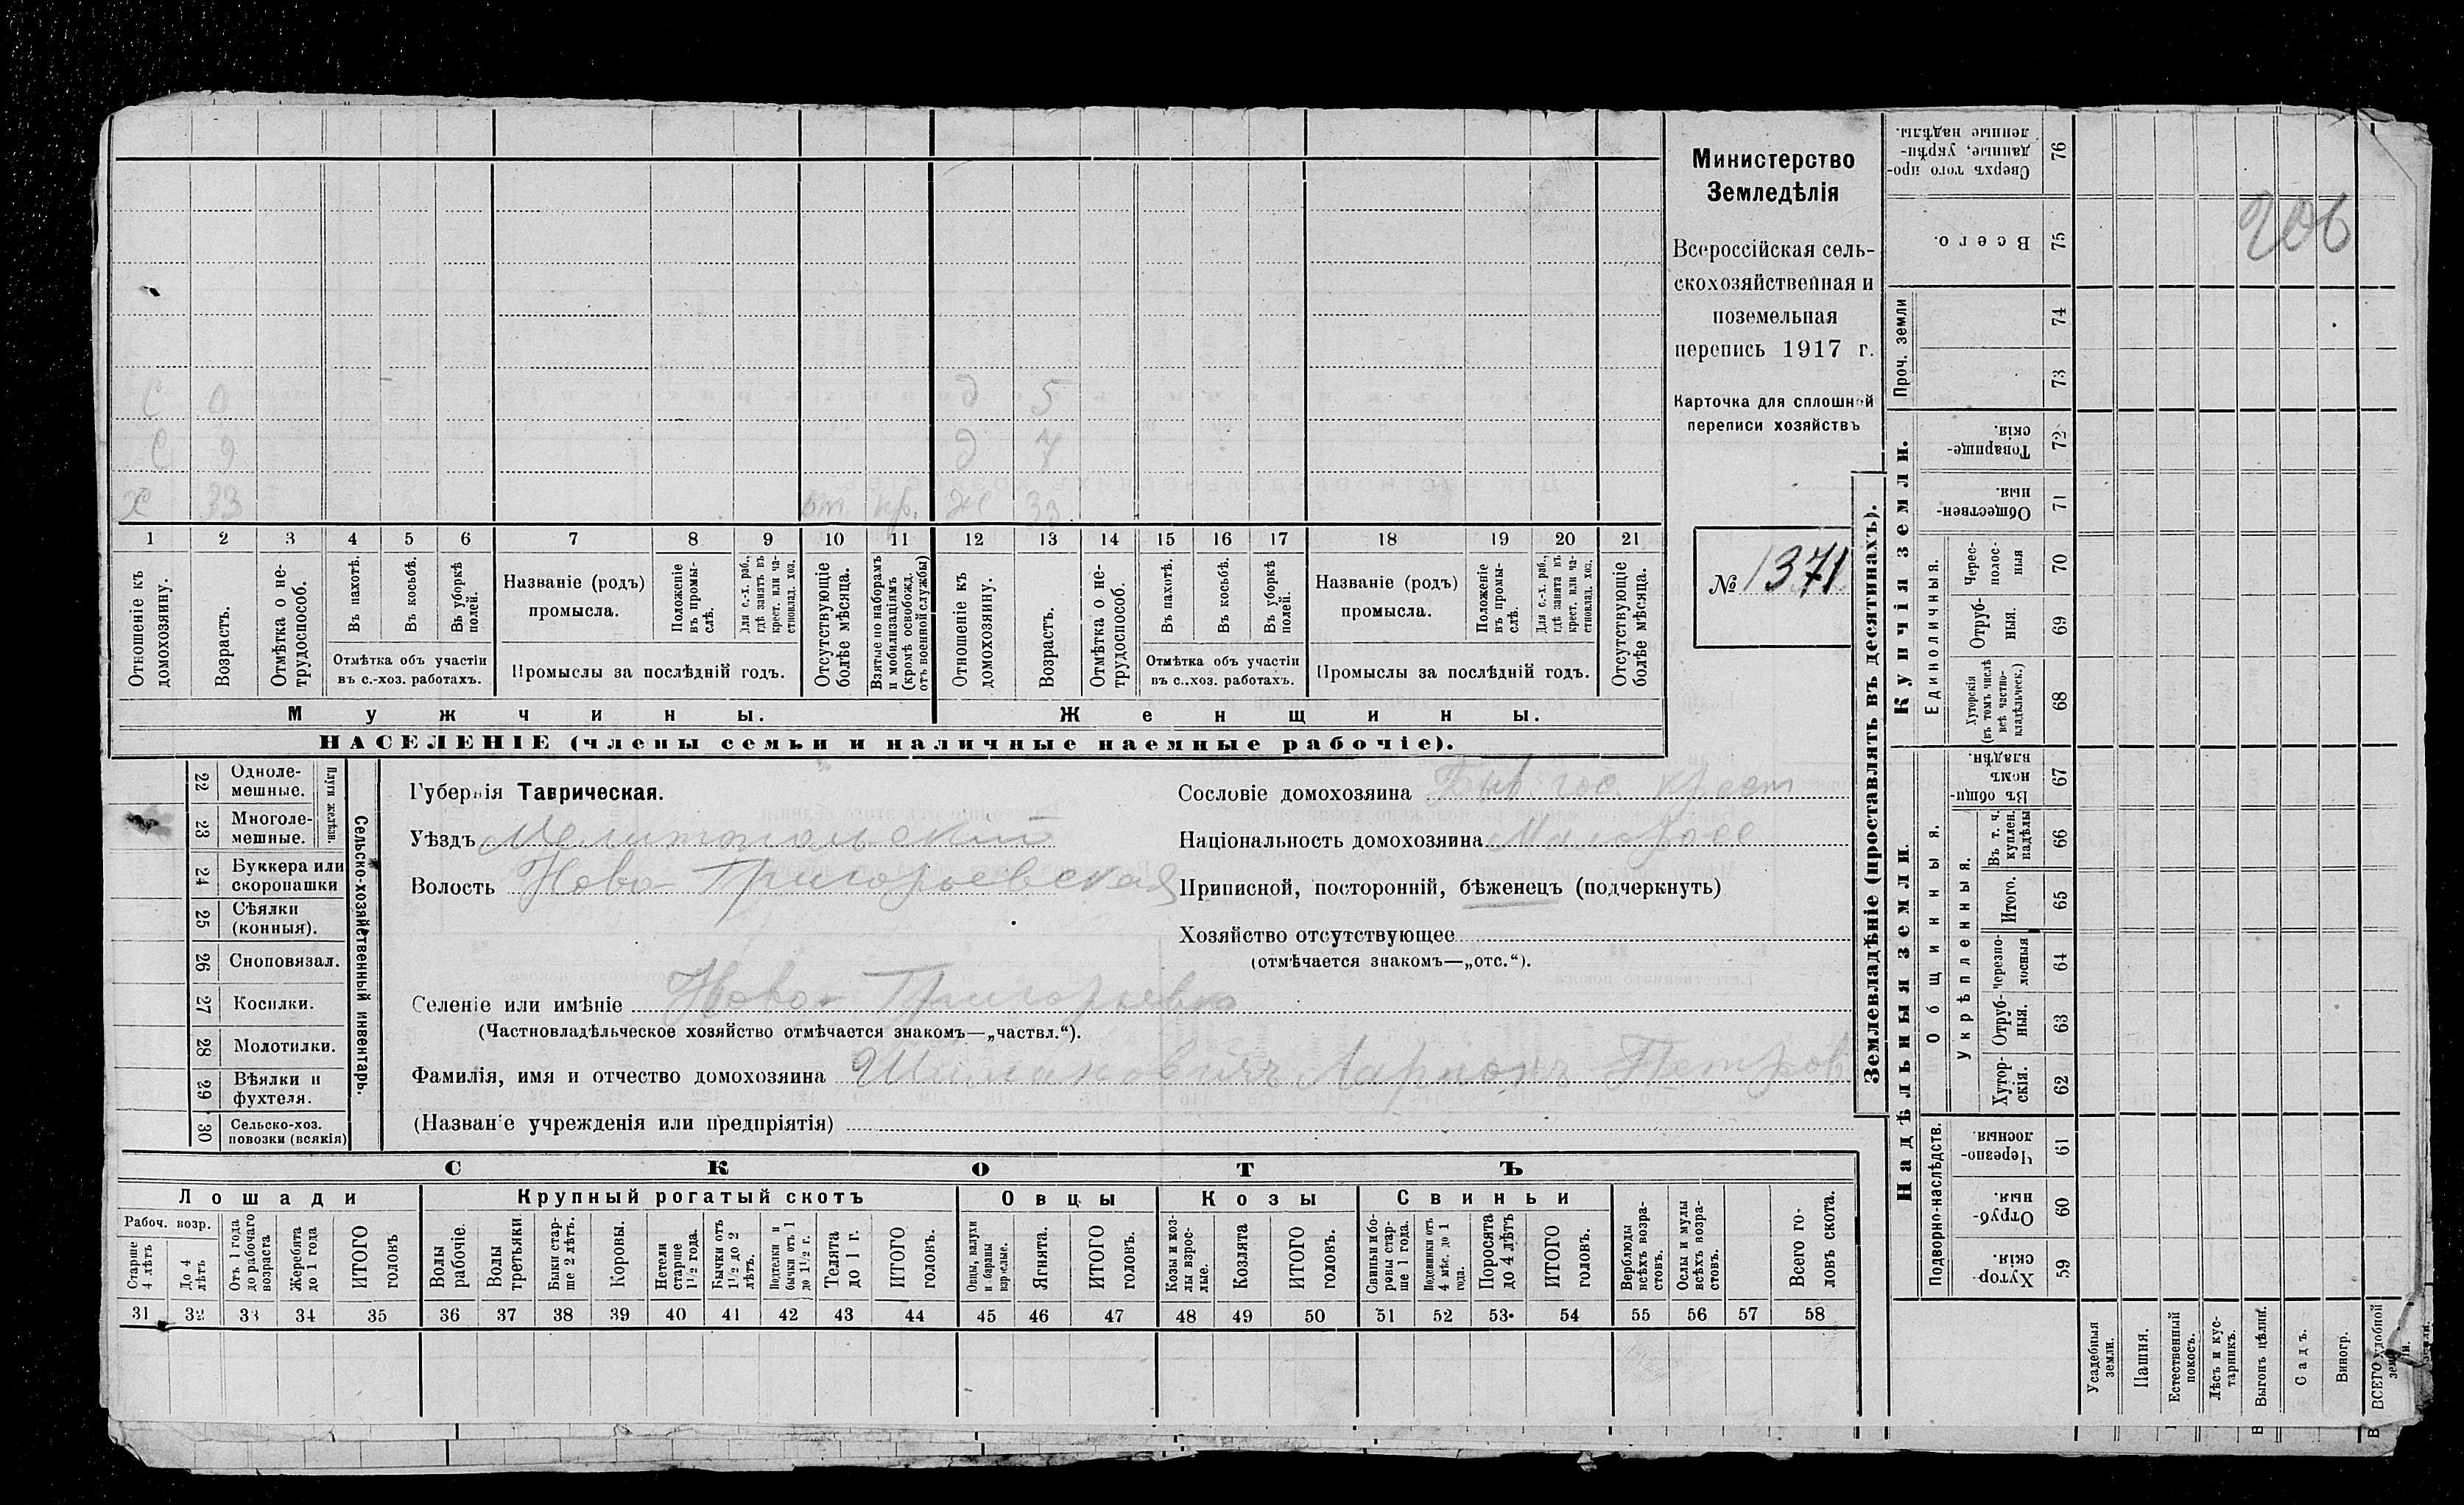 Министерство
Земледѣлія
Всероссійская сель-
скохозяйственная и
поземельная
перепись 1917 г.
Карточка для сплошной
переписи хозяйствъ
№ 1371
206
С 9 д 5
С 9 д 7
Х 33 от. пр. Ж 33
1 2 3 4 5 6 7 8 9 10 11 12 13 14 15 16 17 18 19 20 21
Отношеніе къ домохозяину.
Возрастъ.
Отмѣтка о не-трудоспособ.
Въ пахотѣ.
Въ косьбѣ.
Въ уборкѣ полей.
Отмѣтка объ участіи
въ с.-хоз. работахъ.
Названіе (родъ)
промысла.
Положеніе въ промы-слѣ.
Для с.-х. раб., гдѣ занятъ въ крест. или ча-стновлад. хоз.
Промыслы за послѣдній годъ.
Отсутствующіе болѣе мѣсяца.
Взятые по наборамъ и мобилизаціямъ (кромѣ освобожд. отъ военной службы)
Отношеніе къ домохозяину.
Возрастъ.
Отмѣтка о не-трудоспособ.
Въ пахотѣ.
Въ косьбѣ.
Въ уборкѣ полей.
Отмѣтка объ участіи
въ с.-хоз. работахъ.
Названіе (родъ)
промысла.
Положеніе въ промы-слѣ.
Для с.-х. раб., гдѣ занята въ крест. или ча-стновлад. хоз.
Промыслы за послѣдній годъ.
Отсутствующіе болѣе мѣсяца.
Мужчины. Женщины.
НАСЕЛЕНІЕ (члены семьи и наличные наемные рабочіе).
Сельско-хозяйственный инвентарь.
Плуги желѣзн.
22 Одноле-мешные.
23 Многоле-мешные.
24 Буккера или скоропашки
25 Сѣялки (конныя).
26 Сноповязал.
27 Косилки.
28 Молотилки.
29 Вѣялки и фухтеля.
30 Сельско-хоз. повозки (всякія)
Губернія Таврическая.
Уѣздъ Мелитопольский
Волость Ново-Григорьевская
Сословіе домохозяина Быв. гос. крест
Національность домохозяина Малоросс
Приписной, посторонній, бѣженецъ (подчеркнуть)
Хозяйство отсутствующее
(отмѣчается знакомъ—„отс.“).
Селеніе или имѣніе Ново-Григорьевка
(Частновладѣльческое хозяйство отмѣчается знакомъ—„частвл.“).
Фамилія, имя и отчество домохозяина Ларионъ Петров
(Названіе учрежденія или предпріятія)
СКОТЪ
Лошади Крупный рогатый скотъ Овцы Козы Свиньи
Рабоч. возр.
Старше 4 лѣтъ
До 4 лѣтъ
Отъ 1 года до рабочаго возраста
Жеребята до 1 года
ИТОГО головъ
Волы рабочіе.
Волы третьяки.
Быки стар-ше 2 лѣтъ.
Коровы.
Нетели старше 1½ года.
Бычки отъ 1½ до 2 лѣтъ.
Подтелки и бычки отъ 1 до 1½ г.
Телята до 1 г.
ИТОГО головъ.
Овцы, валухи и бараны взрослые.
Ягнята.
ИТОГО головъ.
Козы и коз-лы взрос-лые.
Козлята
ИТОГО головъ.
Свиньи и бо-ровы стар-ше 1 года.
Подсвинки отъ 4 мѣс. до 1 года.
Поросята до 4 лѣтъ
ИТОГО головъ.
Верблюды всѣхъ возра-стовъ.
Ослы и мулы всѣхъ возра-стовъ.
Всего го-ловъ скота.
31 32 33 34 35 36 37 38 39 40 41 42 43 44 45 46 47 48 49 50 51 52 53 54 55 56 57 58
Землевладѣніе (проставлять въ десятинахъ).
Купчія земли.
Надѣльныя земли.
Сверхъ того про-данные, укрѣп-ленные надѣлы. 76
Всего. 75
Проч. земли
74
73
Товарище-скія. 72
Обществен-ныя. 71
Единоличныя.
Черес-полос-ныя 70
Отруб-ныя. 69
Хуторскія (въ томъ числѣ всѣ частно-владѣльческ.) 68
Общинныя.
Въ общи-номъ владѣн. 67
Укрѣпленныя.
Въ т. ч. куплен. надѣлы 66
Итого. 65
Черезпо-лосныя 64
Отруб-ныя. 63
Хутор-скія. 62
Подворно-наслѣдств.
Черезпо-лосныя. 61
Отруб-ныя. 60
Хутор-скія. 59
Усадебныя земли.
Пашня.
Естественный покосъ.
Лѣсъ и кус-тарникъ.
Выгонъ цѣлин.
Садъ.
Виногр.
ВСЕГО удобной